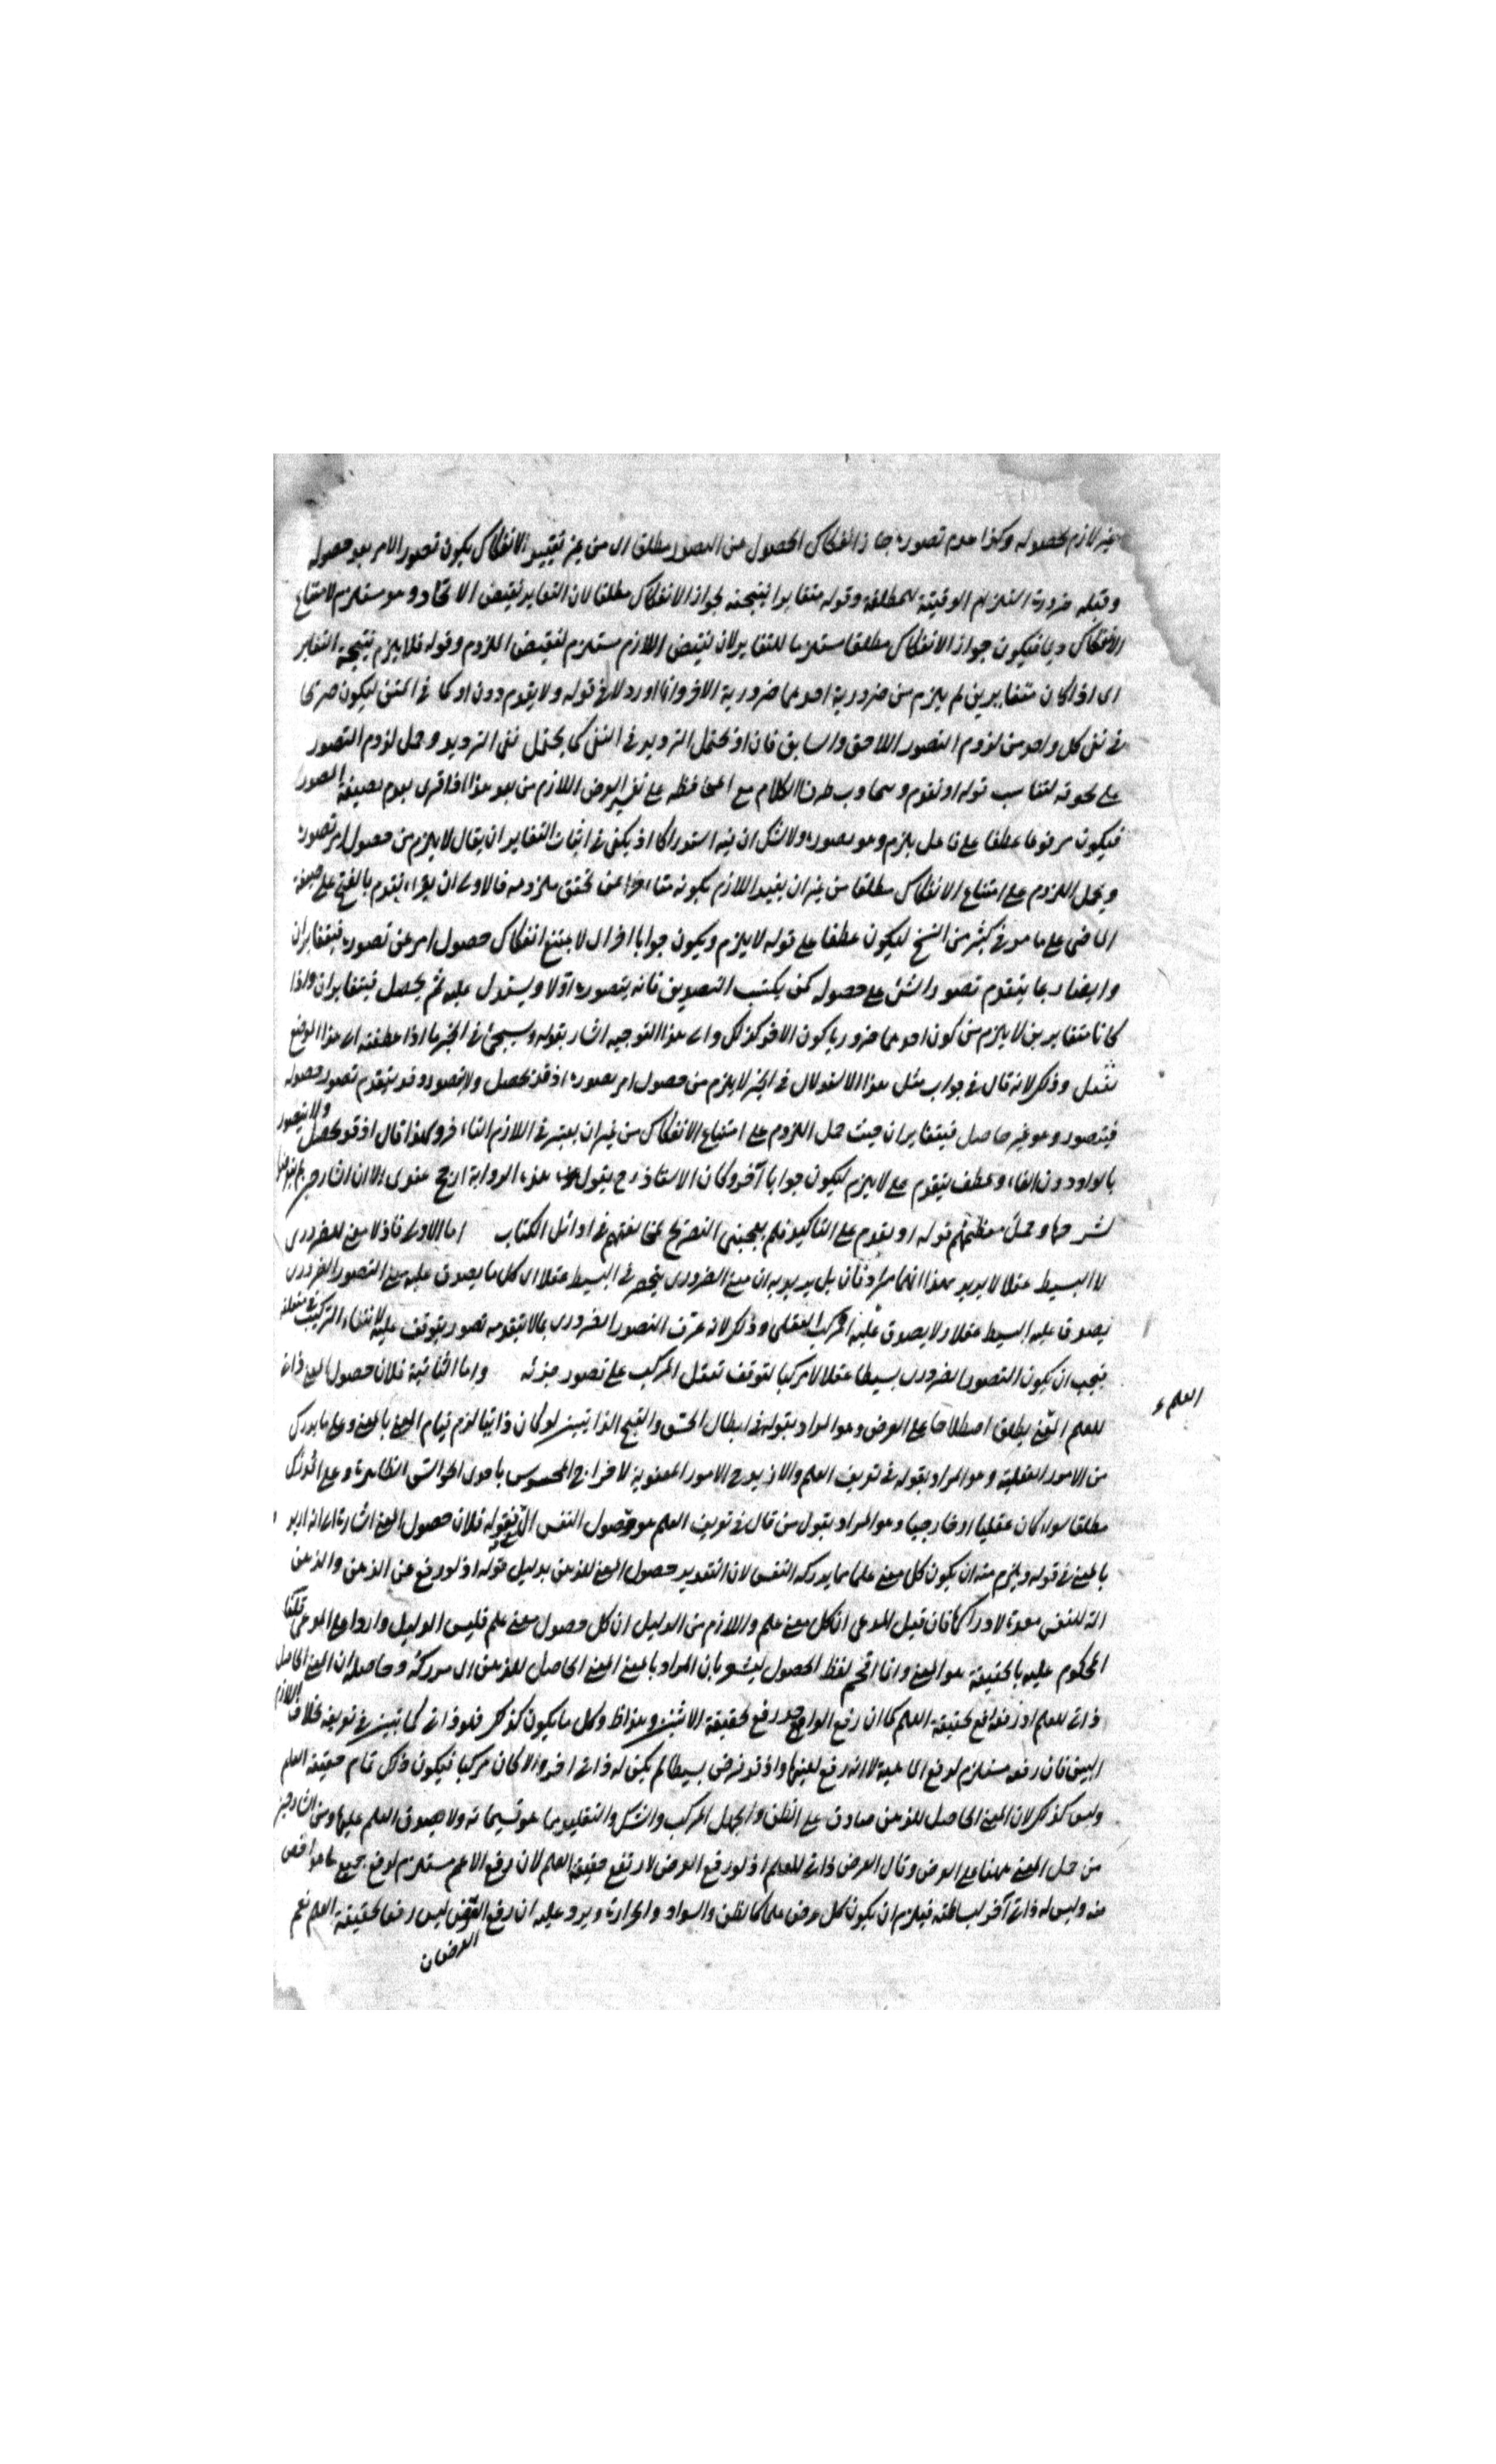 غير لازم لحصوله وكذا عدم تصوره جاز انفكاك الحصول عن التصور مطلقا اى من غير تقييد الانفكاك بكون تصور الامر بعد حصوله
وقبله ضرورة استلزام الوقيتة للمطلقة وقوله متغايرا نتيجته لجواز الانفكاك مطلقا لان التغاير نقيض الاتحاد وهو مستلزم لامتناع
الانفكاك فيكون جواز الانفكاك مطلقا مستلزما للتغاير لان نقيض اللازم مستلزم لنقيض الملزوم وقوله فلا يلزم نتيجة التغاير
اى اذا كان متغايرين لم يلزم من ضرورية احدهما ضرورية الاخر وانما اورد لا فى قوله ولا يتقدم دون او كما فى المتن ليكون صريحا
فى نفى كل واحد من لزوم التصور اللاحق والسابق فان او يحتمل الترديد فى النفى كما يحتمل نفى الترديد وحمل لزوم التصور
على لحوقه لتناسب قوله او تقدم الكلام مع المحافظة على تفسير العرض اللازم من بعد هذا اذا قرى بعدم بصيغة المصدر
فيكون مرفوعا عطفا على فاعل يلزم وهو تصوره ولا شك ان فيه استدراكا اذ يكفى فى اثبات التغاير ان يقال لا يلزم من حصول امر تصوره
ويحمل اللزوم على امتناع الانفكاك مطلقا من غير ان يقيد اللازم بكونه متاخرا عن تحقق ملزومه فالاولى ان يقراء تقدم بالفتح على صيغة
الماضى على ما هو فى كثير من النسخ ليكون عطفا على قوله لا يلزم ويكون جوابا اخر اى لا يمتنع انفكاك حصول امر عن تصوره فيتغايران
وايضا ربما يتقدم تصور الشئ على حصوله كمن يكتسب التصديق فانه يتصوره اولا ويستدل عليه ثم يحصل فيتغايران واذا
كانا متغايرين لا يلزم من كون احدهما ضروريا كون الاخر كذلك والى هذا التوجيه اشار بقوله وسيجئ فى الخبر ما اذا عطفته الى هذا الموضع
وذلك لانه قال فى جواب مثل هذا الاستدلال فى الخبر لا يلزم من حصول امر تصوره اذ قد يحصل ولا يتصور وقد يتقدم تصوره حصوله
فيتصور وهو غير حاصل فيتغايران حيث حمل اللزوم على امتناع الانفكاك من غير ان يعتبر فى اللازم التاخر وكذا قال اذ قد يحصل ولا يتصور
بالواو دون الفاء وعطف يتقدم على لا يلزم ليكون جوابا آخر وكان الاستاذ رح يقول هذه الرواية ارجح عندى الا ان الشارحين
لشرحها وحمل معظمهم قوله او تقدم على التاكيد فلم يعجبنى التصريح بمخالفتهم فى اوائل الكتاب اما الاولى فاذ لا معنى للضرورى
الا البسيط عقلا لا يريد بهذا انهما مترادفان بل يريد به ان معنى الضرورى ينحصر فى البسيط عقلا اى كل ما يصدق عليه معنى التصور الضرورى
يصدق عليه البسيط عقلا ولا يصدق عليه المركب العقلى وذلك لانه عرف التصور الضرورى بما لا يتقدمه تصور يتوقف عليه لانتفاء التركيب فى متعلقه
فيجب ان يكون التصور الضرورى بسيطا عقلا لا مركبا لتوقف تعقل المركب على تصور جزئه واما الثانية فلان حصول المعنى ذاتى
العلم
للعلم المعنى يطلق اصطلاحا على العرض وهو المراد بقوله فى ابطال الحسن والقبح الذاتيين لو كان ذاتيا لزم قيام المعنى بالمعنى وعلى ما يدرك
من الامور العقلية وهو المراد بقوله فى تعريف العلم والا زيد فى الامور المعنوية لاخراج المحسوس باحدى الحواس الظاهرة وعلى المدرك
مطلقا سواء كان عقليا او خارجيا وهو المراد بقول من قال فى تعريف العلم هو وصول النفس الى المعنى فقوله فلان حصول المعنى اشارة الى انه اريد
بالمعنى فى قوله ويلزم منه ان يكون كل معنى علما ما يدركه النفس لان التقدير حصول المعنى للذهن بدليل قوله اذ لو رفع عن الذهن والذهن
آلة للنفس معدة لادراكها فان قيل المدعى ان كل معنى علم واللازم من الدليل ان كل حصول معنى علم فليس الدليل واردا على المدعى قلنا
المحكوم عليه بالحقيقة هو المعنى وانما اقحم لفظ الحصول ليشعر بان المراد بالمعنى المعنى الحاصل للذهن اى مدركه وحاصله ان المعنى الحاصل
ذاتى للعلم اذ رفعه رفع لحقيقة العلم كما ان رفع الواحد رفع لحقيقة الاثنين وهو ظ وكل ما يكون كذلك فهو ذاتى كما تبين فى تعريفه بخلاف اللازم
البين فان رفعه مستلزم لرفع الماهية لا انه رفع لعينها واذ قد فرض بسيطا لم يكن له ذاتى اخر والا كان مركبا فيكون ذلك تمام حقيقة العلم
وليس كذلك لان المعنى الحاصل للذهن صادق على الظن والجهل المركب والشك والتقليد مما هو قسيماته ولا يصدق العلم عليها ومن الشارحين
من حمل المعنى ههنا على العرض وقال العرض ذاتى للعلم اذ لو رفع العرض لارتفع حقيقة العلم لان رفع الاعم مستلزم لرفع جميع ما هو اخص
منه وليس له ذاتى آخر لبساطته فيلزم ان يكون كل عرض علما كالظن والسواد والحرارة ويرد عليه ان رفع العرض ليس رفعا لحقيقة العلم نعم
العرض ان